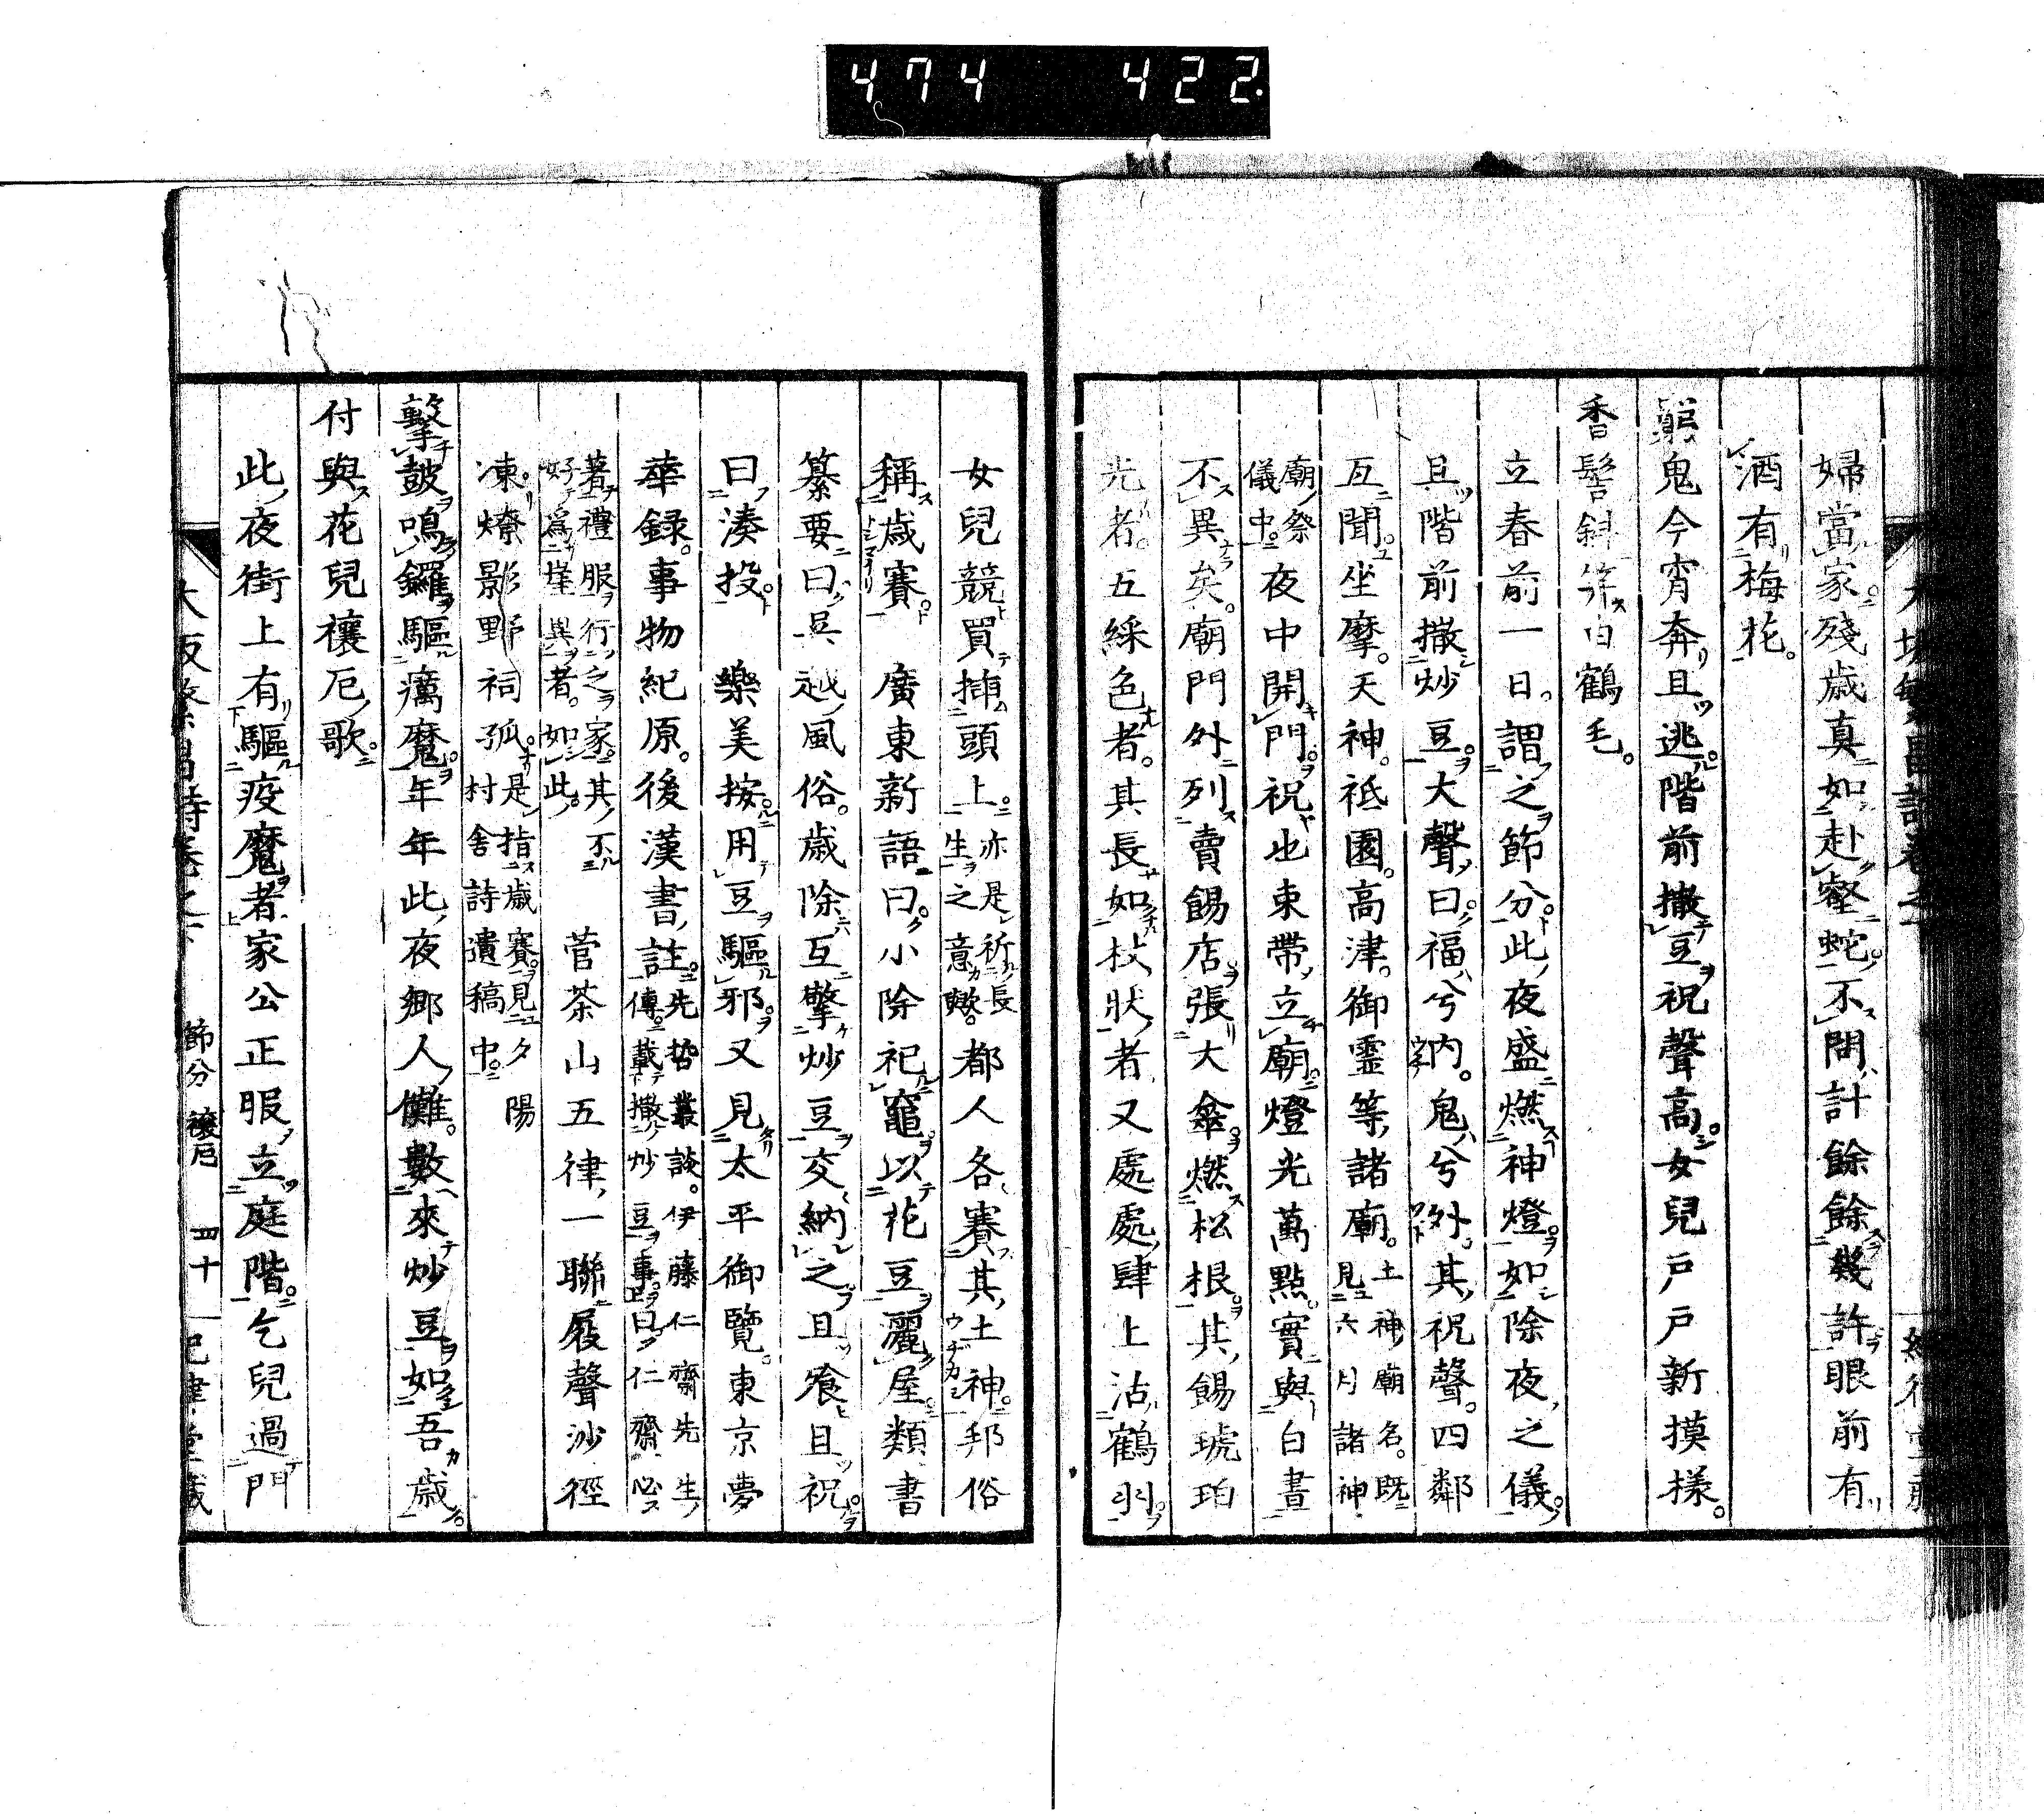 474 422
婦當家殘歳真如赴壑蛇不問計餘餘幾許眼前有
酒有梅花
窮鬼今宵奔且逃階前撒豆祝聲高女兒戸戸新摸樣
香髻斜 白鶴毛
立春前一日謂之節分此夜盛燃神燈如除夜之儀
且階前撒炒豆大聲曰福兮内鬼兮外其祝聲四鄰
互聞坐摩天神祗園高津御靈等諸廟土神廟名既
見六月諸神
廟祭
儀中夜中開門祝也束帶立廟燈光萬點實與白晝
不異矣廟門外列賣餳店張大傘燃松根其餳琥珀
光者五綵色者其長如杖狀者又處處肆上沽鶴羽
女兒競買挿頭上亦是祈長
生之意歟都人各賽其土神邦俗
稱歳賽 廣東新語曰小除祀竈以花豆灑屋類書
纂要曰吳越風俗歳除互擎炒豆交納之且飡且祝
曰湊投 樂美按用豆驅邪又見太平御覽東京夢
華録事物紀原後漢書註先哲叢談伊藤仁齋先生
傳載撒炒豆事曰仁齋必
著禮服行之家其不
好爲崖異者如此 菅茶山五律一聯屐聲沙徑
凍燎影野祠孤是指歳賽見夕陽
村舍詩遺稿中
擊皷鳴鑼驅癘魔年年此夜鄉人儺數來炒豆如吾歳
付與花兒禳厄歌
此夜街上有驅疫魔者家公正服立庭階乞兒過門
大阪繁昌詩卷之下 節分 禳厄 四十